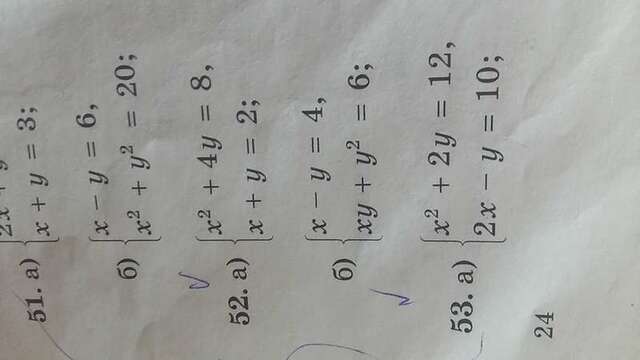 51. а)
x + y = 3;
б) x − y = 6,
x² + y² = 20;
52. а) x² + 4y = 8,
x + y = 2;
б) x − y = 4,
xy + y² = 6;
53. а) x² + 2y = 12,
2x − y = 10;
24